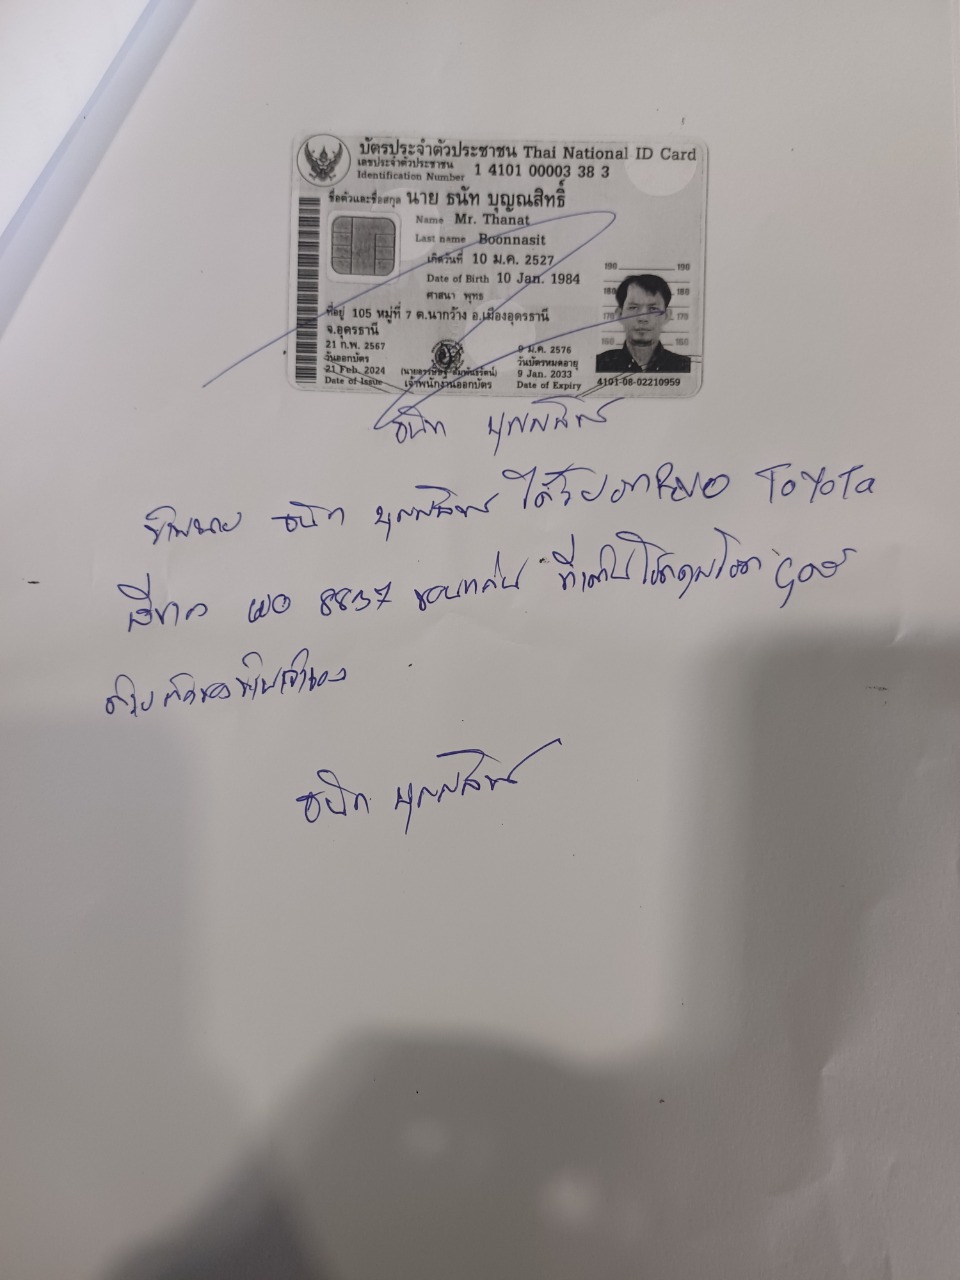 บัตรประจำตัวประชาชน Thai National ID Card
เลขประจำตัวประชาชน
Identification Number 1 4101 00003 38 3
ชื่อตัวและชื่อสกุล นาย ธนัท บุญณสิทธิ์
Name Mr. Thanat
Last name Boonnasit
เกิดวันที่ 10 ม.ค. 2527
Date of Birth 10 Jan. 1984
ศาสนา พุทธ
ที่อยู่ 105 หมู่ที่ 7 ต.นากว้าง อ.เมืองอุดรธานี
จ.อุดรธานี
21 ก.พ. 2567
วันออกบัตร
21 Feb. 2024
Date of Issue
เจ้าพนักงานออกบัตร
9 ม.ค. 2576
วันบัตรหมดอายุ
9 Jan. 2033
Date of Expiry
190 190
180 180
170 170
160 160
4101-08-02210959
ธนัท บุญณสิทธิ์
ข้าพเจ้านาย ธนัท บุญณสิทธิ์ ได้ TOYOTA
สีขาว 8837 ขอนแก่น
ธนัท บุญณสิทธิ์